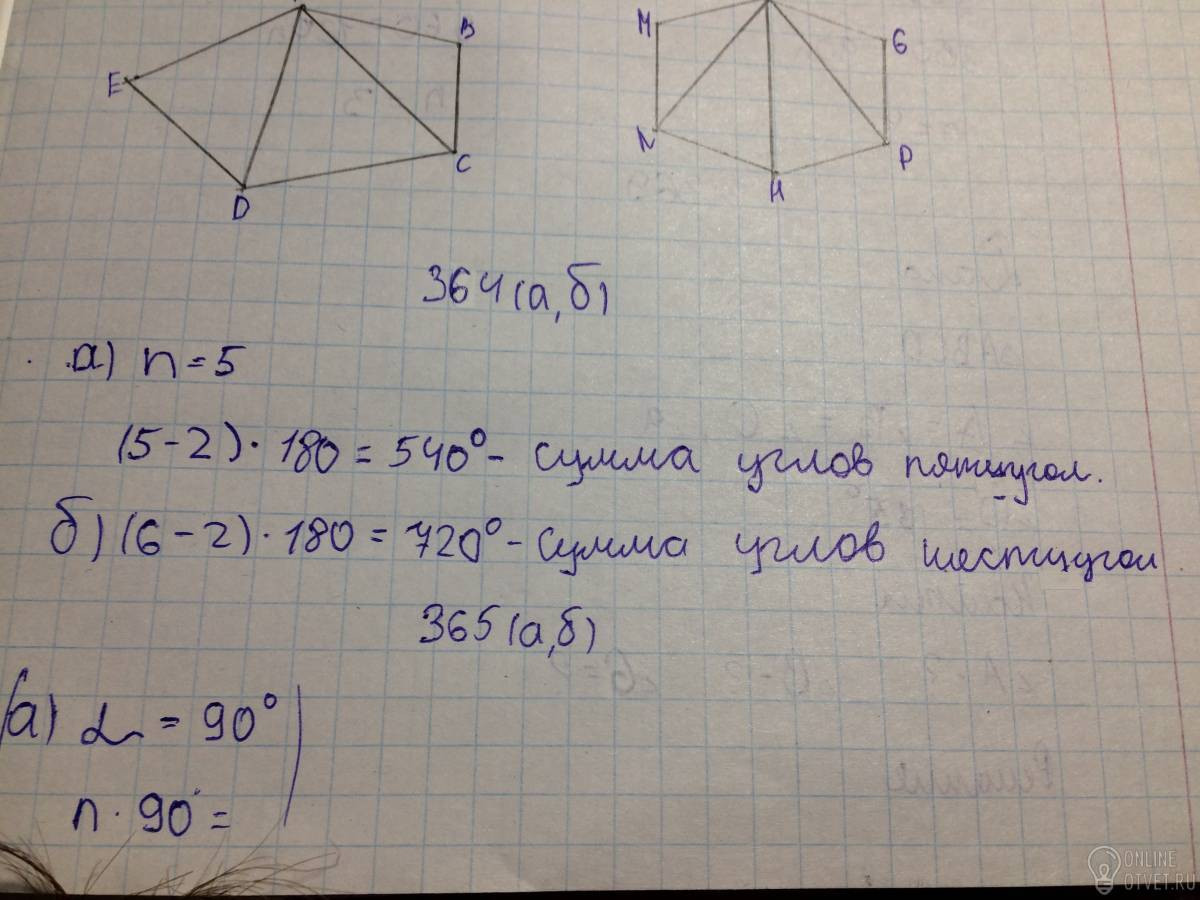 B
E
C
D
M
G
N
P
H
364(а,б)
а) n=5
(5-2)·180=540°- сумма углов пятиугол.
б) (6-2)·180=720°-сумма углов шестиугол
365(а,б)
(а) α = 90°
n·90°=
ONLINE
OTVET.RU